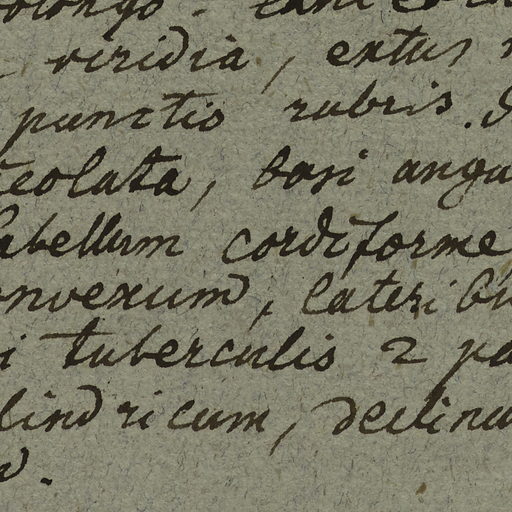 viridia, extus
punctis rubris.
teolata, basi angu
labellum cordiforme
onvexum, lateribu
i tuberculis 2 pa
lindricum, declinu